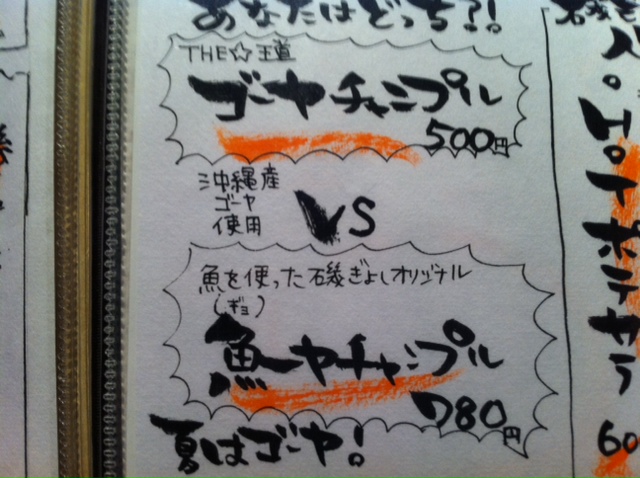 あなたはどっち?!
THE☆王道
ゴーヤチャンプル
500円
沖縄産
ゴーヤ
使用
VS
魚を使った磯ぎよしオリジナル
(ギョ)
魚ーヤチャンプル
780円
夏はゴーヤ!
ポテサラ
60